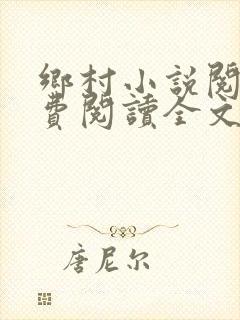 鄉村小説閱
費閱讀全文
唐尼尔